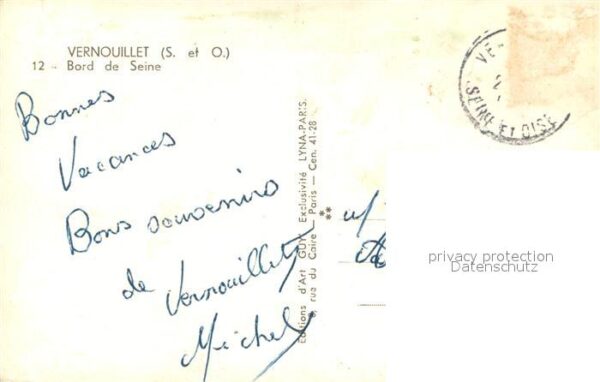 VERNOUILLET (S. et O.)
12 - Bord de Seine
Bonnes
Vacances
Bons souvenirs
de Vernouillet
Michel
Editions d'Art GUY Exclusivité LYNA-PARIS.
rue du Caire — Paris — Cen. 41-28
**
**
VE
SEINE ET OISE
privacy protection
Datenschutz